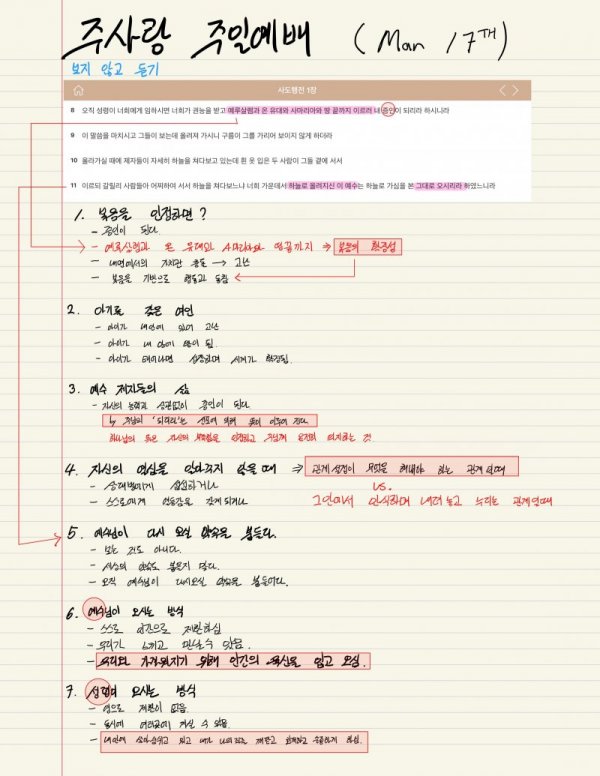 주사랑 주일예배 (Mar 17th)
보지 않고 듣기
사도행전 1장
8 오직 성령이 너희에게 임하시면 너희가 권능을 받고 예루살렘과 온 유대와 사마리아와 땅 끝까지 이르러 내 증인이 되리라 하시니라
9 이 말씀을 마치시고 그들이 보는데 올려져 가시니 구름이 그를 가리어 보이지 않게 하더라
10 올라가실 때에 제자들이 자세히 하늘을 쳐다보고 있는데 흰 옷 입은 두 사람이 그들 곁에 서서
11 이르되 갈릴리 사람들아 어찌하여 서서 하늘을 쳐다보느냐 너희 가운데서 하늘로 올려지신 이 예수는 하늘로 가심을 본 그대로 오시리라 하였느니라
1. 복음을 인정하면?
- 증인이 된다
- 예루살렘과 온 유대와 사마리아와 땅끝까지 ⇒ 복음의 확장성
- 내면에서의 가치관 충돌 → 고난
- 복음을 기반으로 행동과 동참
2. 아기를 갖은 여인
- 아이가 내 안에 있어 고난
- 아이가 내 안에 있게 됨.
- 아이가 태어나면 성장하며 시계가 확장됨.
3. 예수 제자들의 삶
- 자신의 능력과 상관없이 증인이 된다
↳ 주님의 '되리라'는 선포에 의해
하나님의 뜻은 자신의 인정하고 주님께 온전히 의지하는 것
4. 자신의 열심을 알아주지 않을 때 ⇒ 관계 설정이 무엇을 해내야 하는 관계일 때
- 상대방에게 섭섭하거나
vs.
- 스스로에게 열등감을 갖게 되거나
그 안에서 안식하며 내려놓고 누리는 관계일 때
5. 예수님이 다시 오실 약속을 붙든다.
- 보는 것도 아니다.
- 세상의 약속도 붙든지 않다.
- 오직 예수님이 다시오실 약속을 붙든이다.
6. 예수님이 오시는 방식
- 스스로 인간으로 제한하심
- 우리가 느끼고 만날 수 있음.
- 우리와 가까워지기 위해 인간의 육신을 입고 오심.
7. 성령이 오시는 방식
- 영으로 제한이 없음.
- 동시에 여러곳에 계실 수 있음.
- 내안에 살아숨쉬고 있고 내가